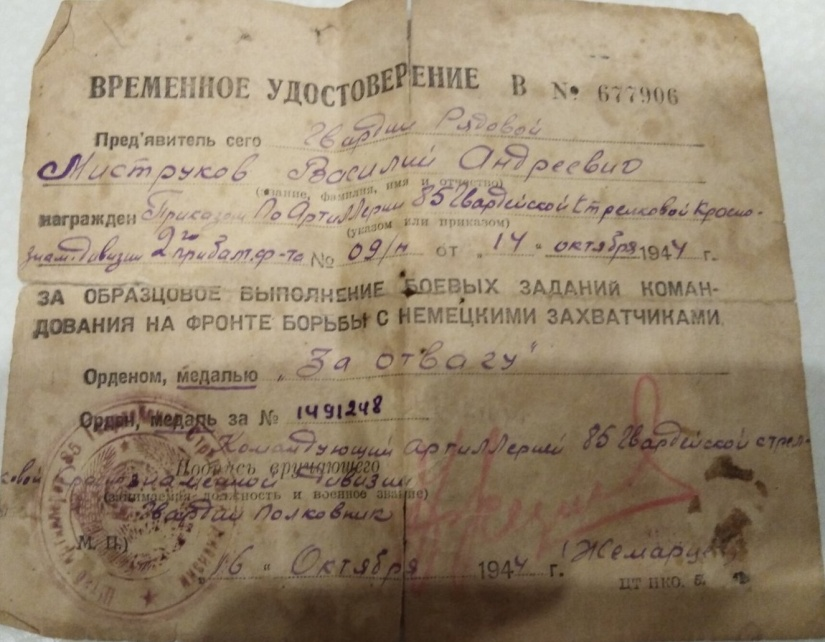 ВРЕМЕННОЕ УДОСТОВЕРЕНИЕ В № 677906
Пред'явитель сего Гвардии Рядовой
Миструков Василий Андреевич
(звание, фамилия, имя и отчество)
награжден Приказом По Артиллерии 85 Гвардейской Стрелковой Красно-
(указом или приказом)
знам. дивизии 2го прибалт. ф-та № 09/н от "14" октября 1944 г.
ЗА ОБРАЗЦОВОЕ ВЫПОЛНЕНИЕ БОЕВЫХ ЗАДАНИЙ КОМАН-
ДОВАНИЯ НА ФРОНТЕ БОРЬБЫ С НЕМЕЦКИМИ ЗАХВАТЧИКАМИ
Орденом, медалью "За отвагу"
Орден, медаль за № 1491248
Командующий артиллерией 85 Гвардейской стрел-
Подпись вручающего
ковой краснознаменной дивизии
(занимаемая должность и военное звание)
Гвардии Полковник
М. П.)
"16" Октября 1944 г.
ЦТ НКО.